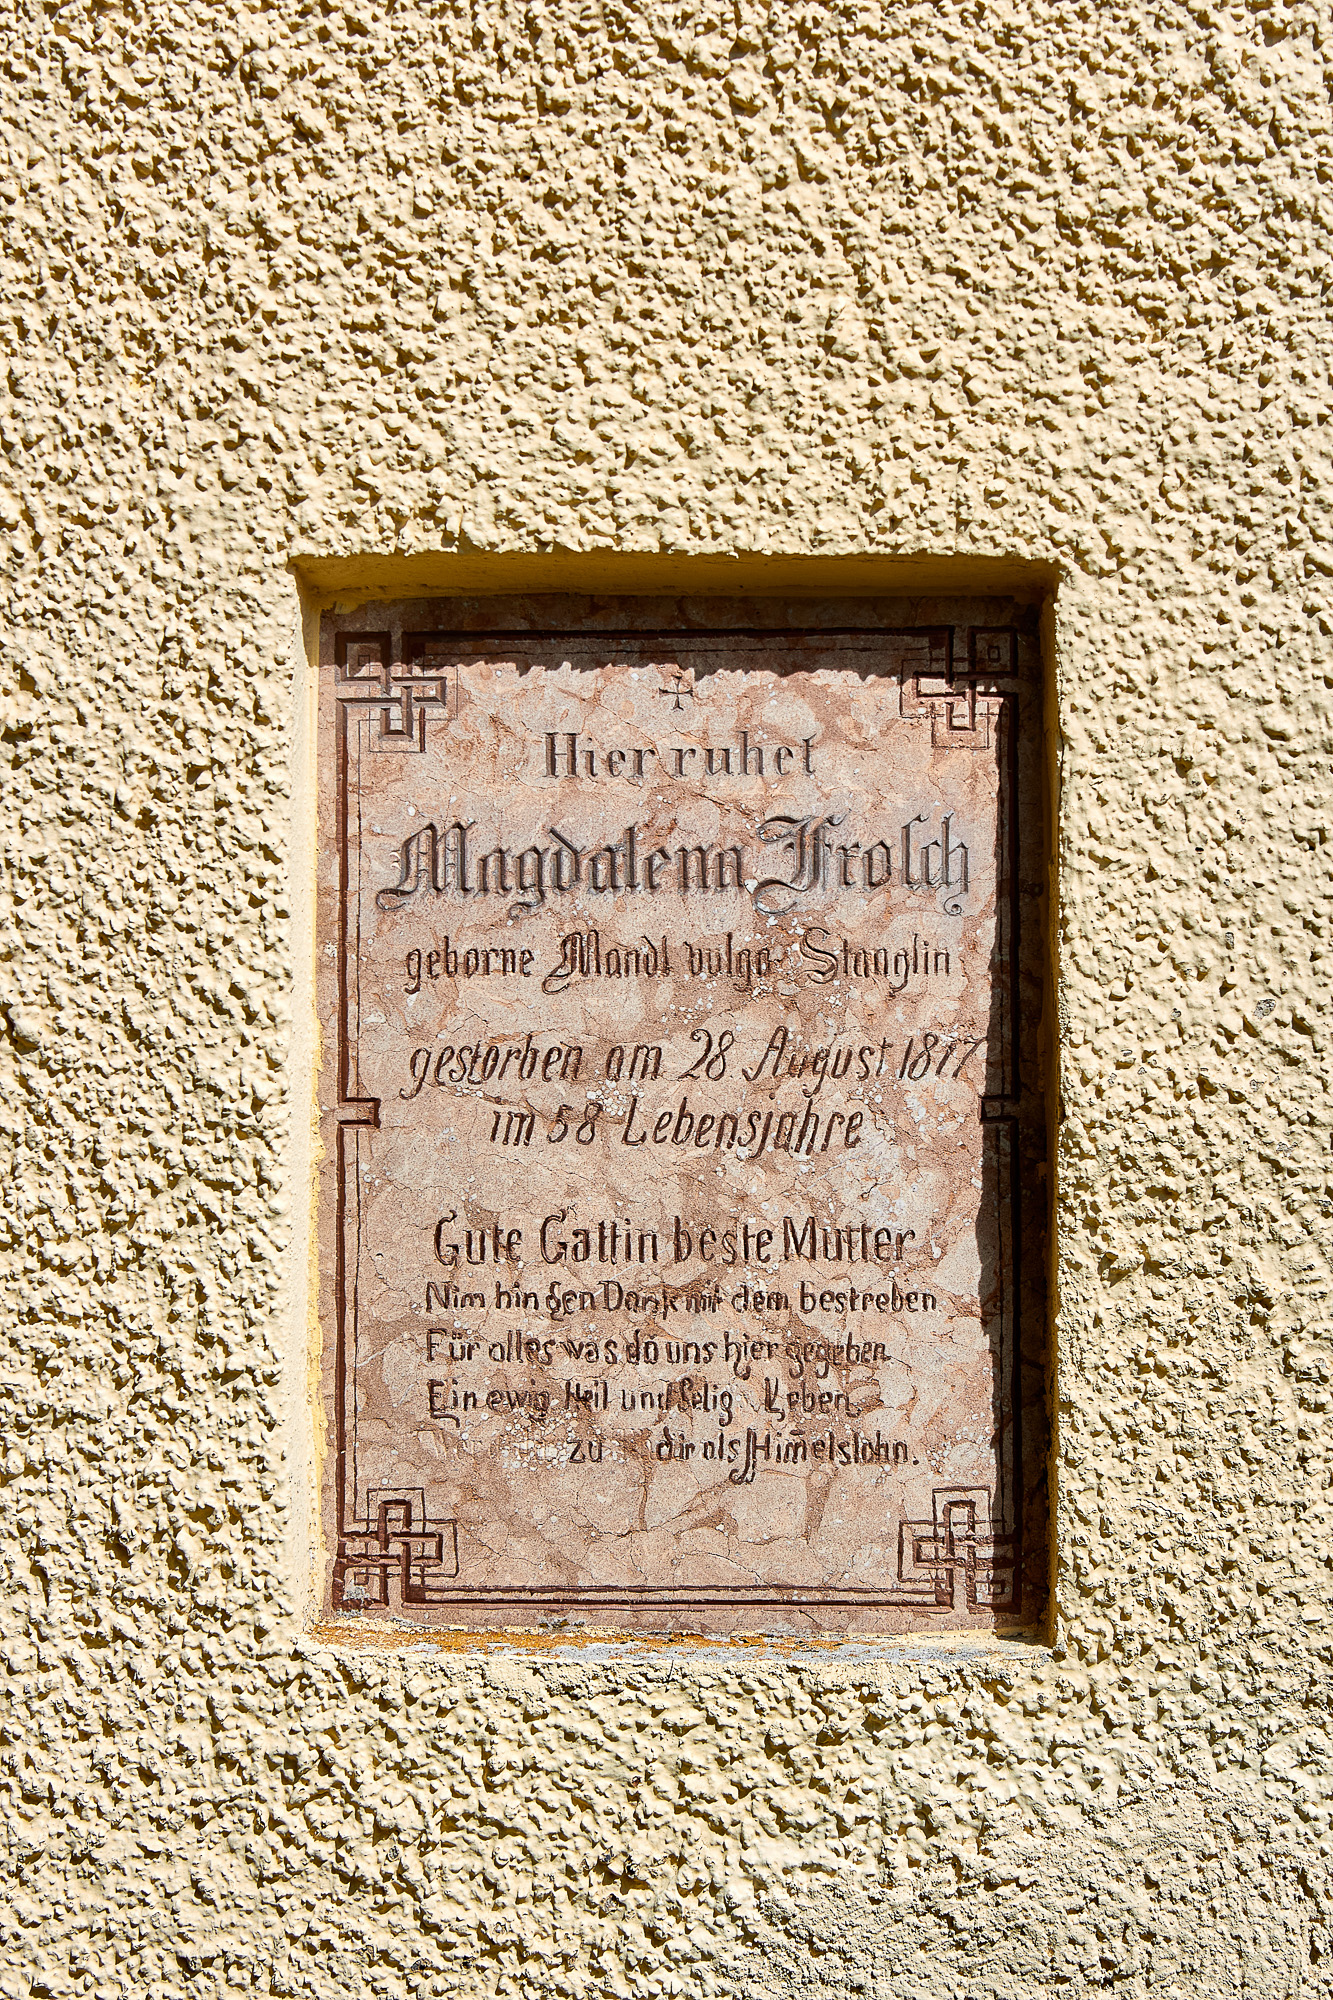 Hier ruhet
Magdalena Frosch
geborne Mandl vulgo Stanglin
gestorben am 28 August 1877
im 58 Lebensjahre
Gute Gattin beste Mutter
Nim hin den Dank mit dem bestreben
Für alles was du uns hier gegeben
Ein ewig Heil und selig Leben
zu dir als Him̄elslohn.